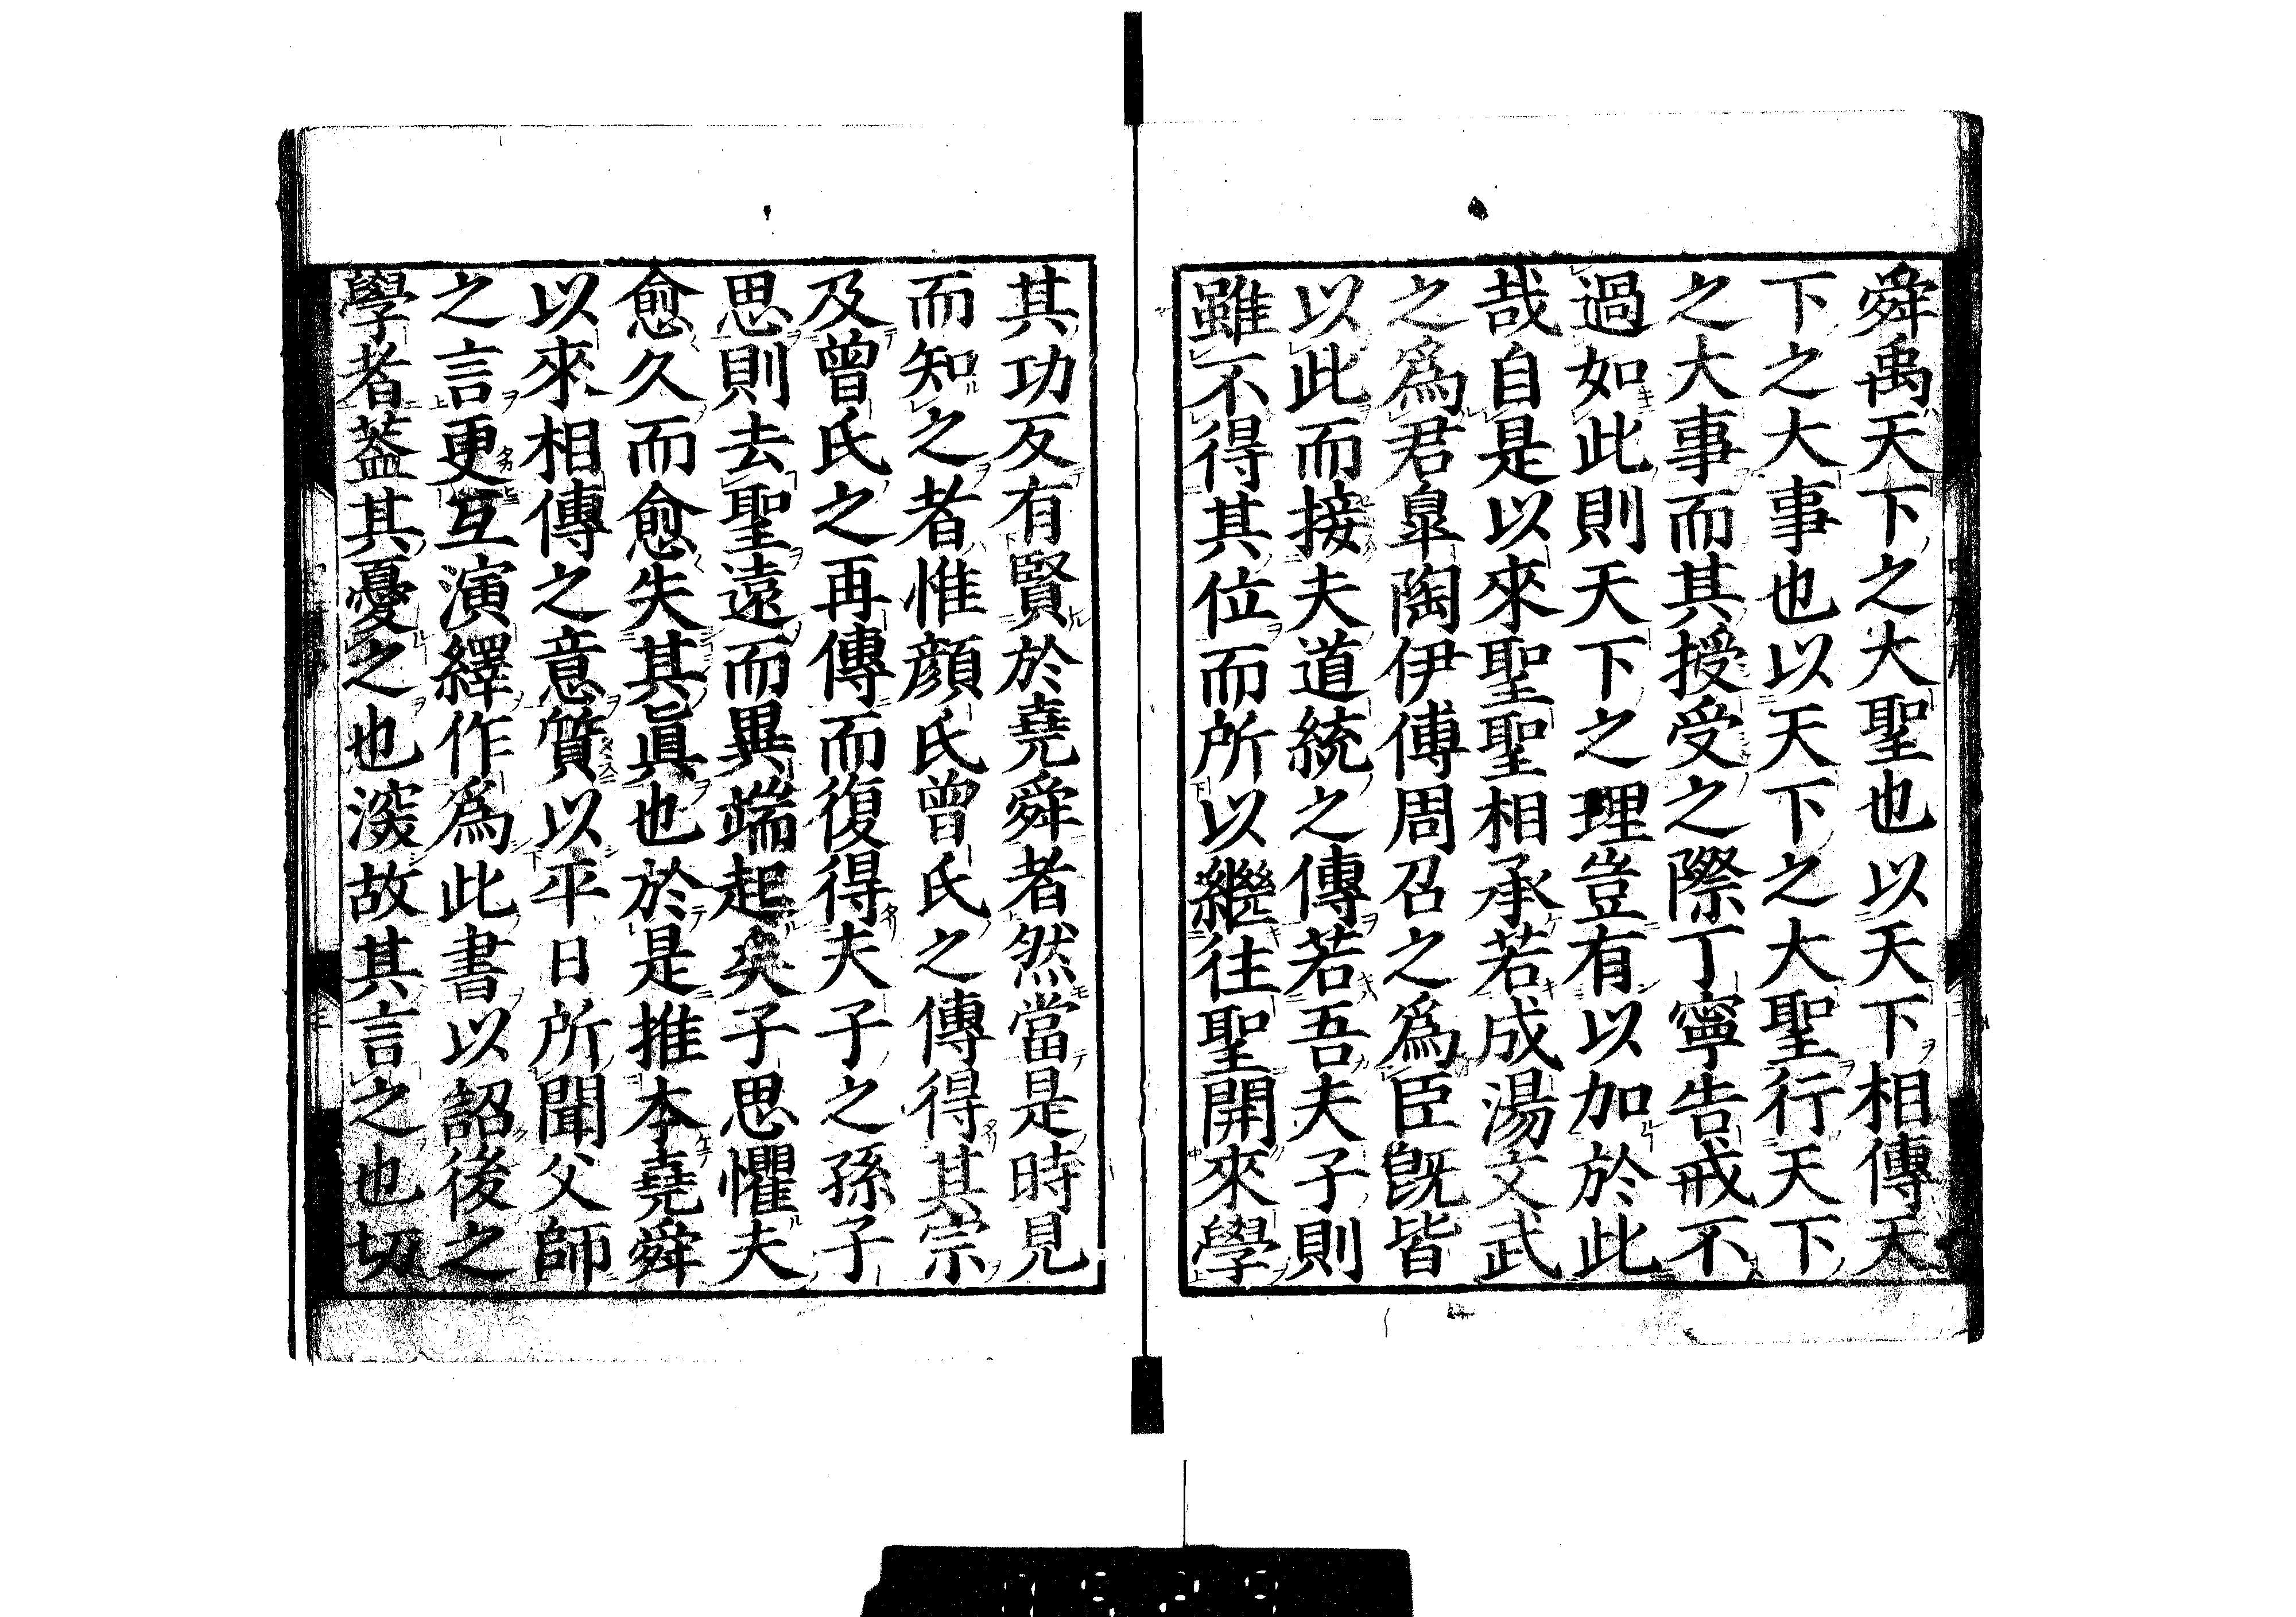 舜禹天下之大聖也以天下相傳天
下之大事也以天下之大聖行天下
之大事而其授受之際丁寧告戒不
過如此則天下之理豈有以加於此
哉自是以來聖聖相承若成湯文武
之爲君皐陶伊傅周召之爲臣既皆
以此而接夫道統之傳若吾夫子則
雖不得其位而所以繼往聖開來學
其功反有賢於堯舜者然當是時見
而知之者惟顔氏曾氏之傳得其宗
及曾氏之再傳而復得夫子之孫子
思則去聖遠而異端起矣子思懼夫
愈久而愈失其眞也於是推本堯舜
以來相傳之意質以平日所聞父師
之言更互演繹作爲此書以詔後之
學者蓋其憂之也深故其言之也切